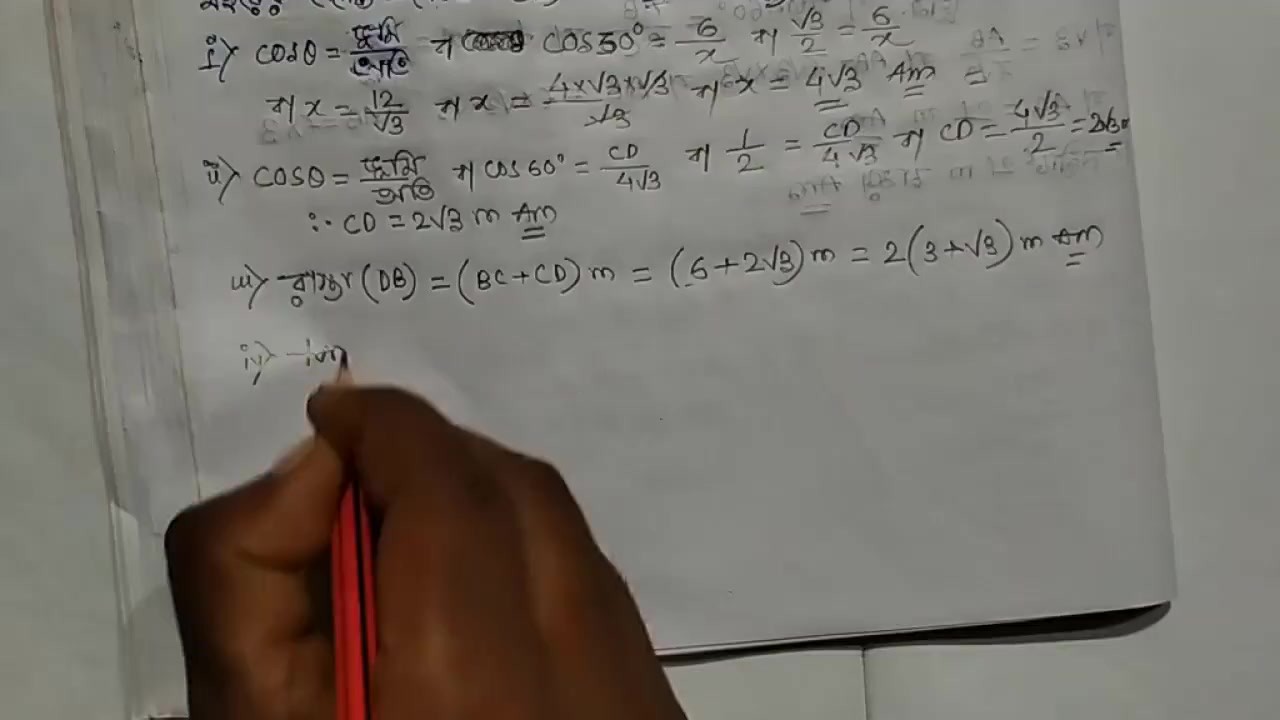 i) cosθ = ভূমি/অতি বা cos30° = 6/x বা √3/2 = 6/x
বা x = 12/√3 বা x = 4×√3×√3/√3 বা x = 4√3 Am
ii) cosθ = ভূমি/অতি বা cos60° = CD/4√3 বা 1/2 = CD/4√3 বা CD = 4√3/2 = 2√3
∴ CD = 2√3 m Am
iii) (DB) = (BC+CD) m = (6+2√3) m = 2(3+√3) m Am
iv) tan